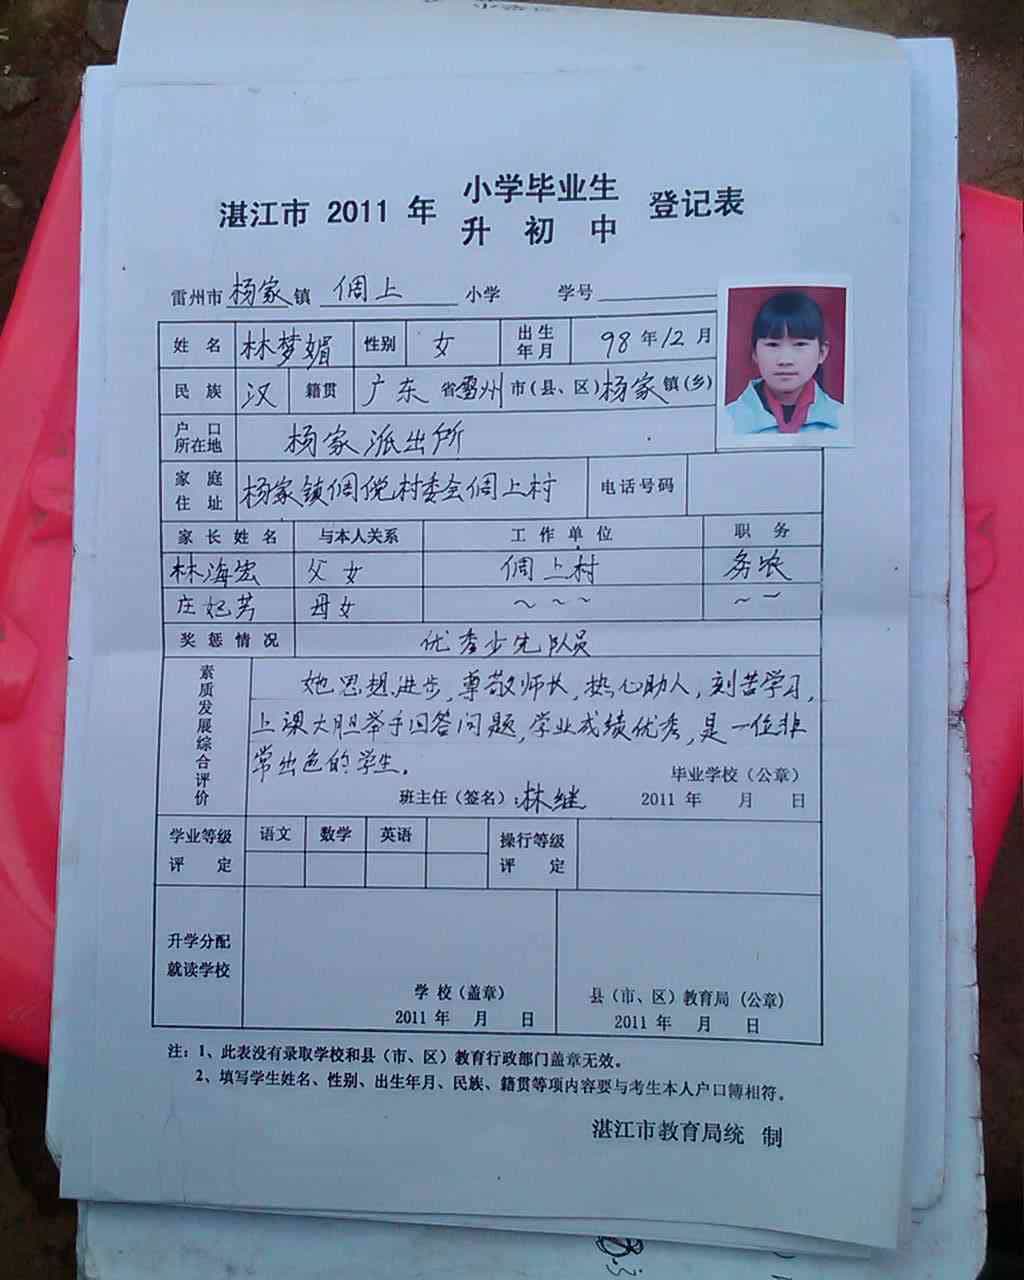 湛江市 2011 年 小学毕业生 登记表
升 初 中
雷州市 杨家 镇 倜上 小学 学号
姓 名 林梦媚 性别 女 出生年月 98 年 12 月
民 族 汉 籍贯 广东 省 雷州 市(县、区) 杨家 镇(乡)
户 口 所在地 杨家派出所
家 庭 住 址 杨家镇倜傥村委会倜上村 电话号码
家 长 姓 名 与本人关系 工 作 单 位 职 务
林海宏 父女 倜上村 务农
庄妃芳 母女 ~ ~ ~ ~ ~
奖 惩 情 况 优秀少先队员
素质发展综合评价
她思想进步,尊敬师长,热心助人,刻苦学习,
上课大胆举手回答问题,学业成绩优秀,是一位非
常出色的学生.
毕业学校(公章)
班主任(签名):林继 2011 年 月 日
学业等级 评 定 语文 数学 英语 操行等级 评 定
升学分配
就读学校
学 校(盖章) 县(市、区)教育局(公章)
2011 年 月 日 2011 年 月 日
注:1、此表没有录取学校和县(市、区)教育行政部门盖章无效。
2、填写学生姓名、性别、出生年月、民族、籍贯等项内容要与考生本人户口簿相符。
湛江市教育局统 制